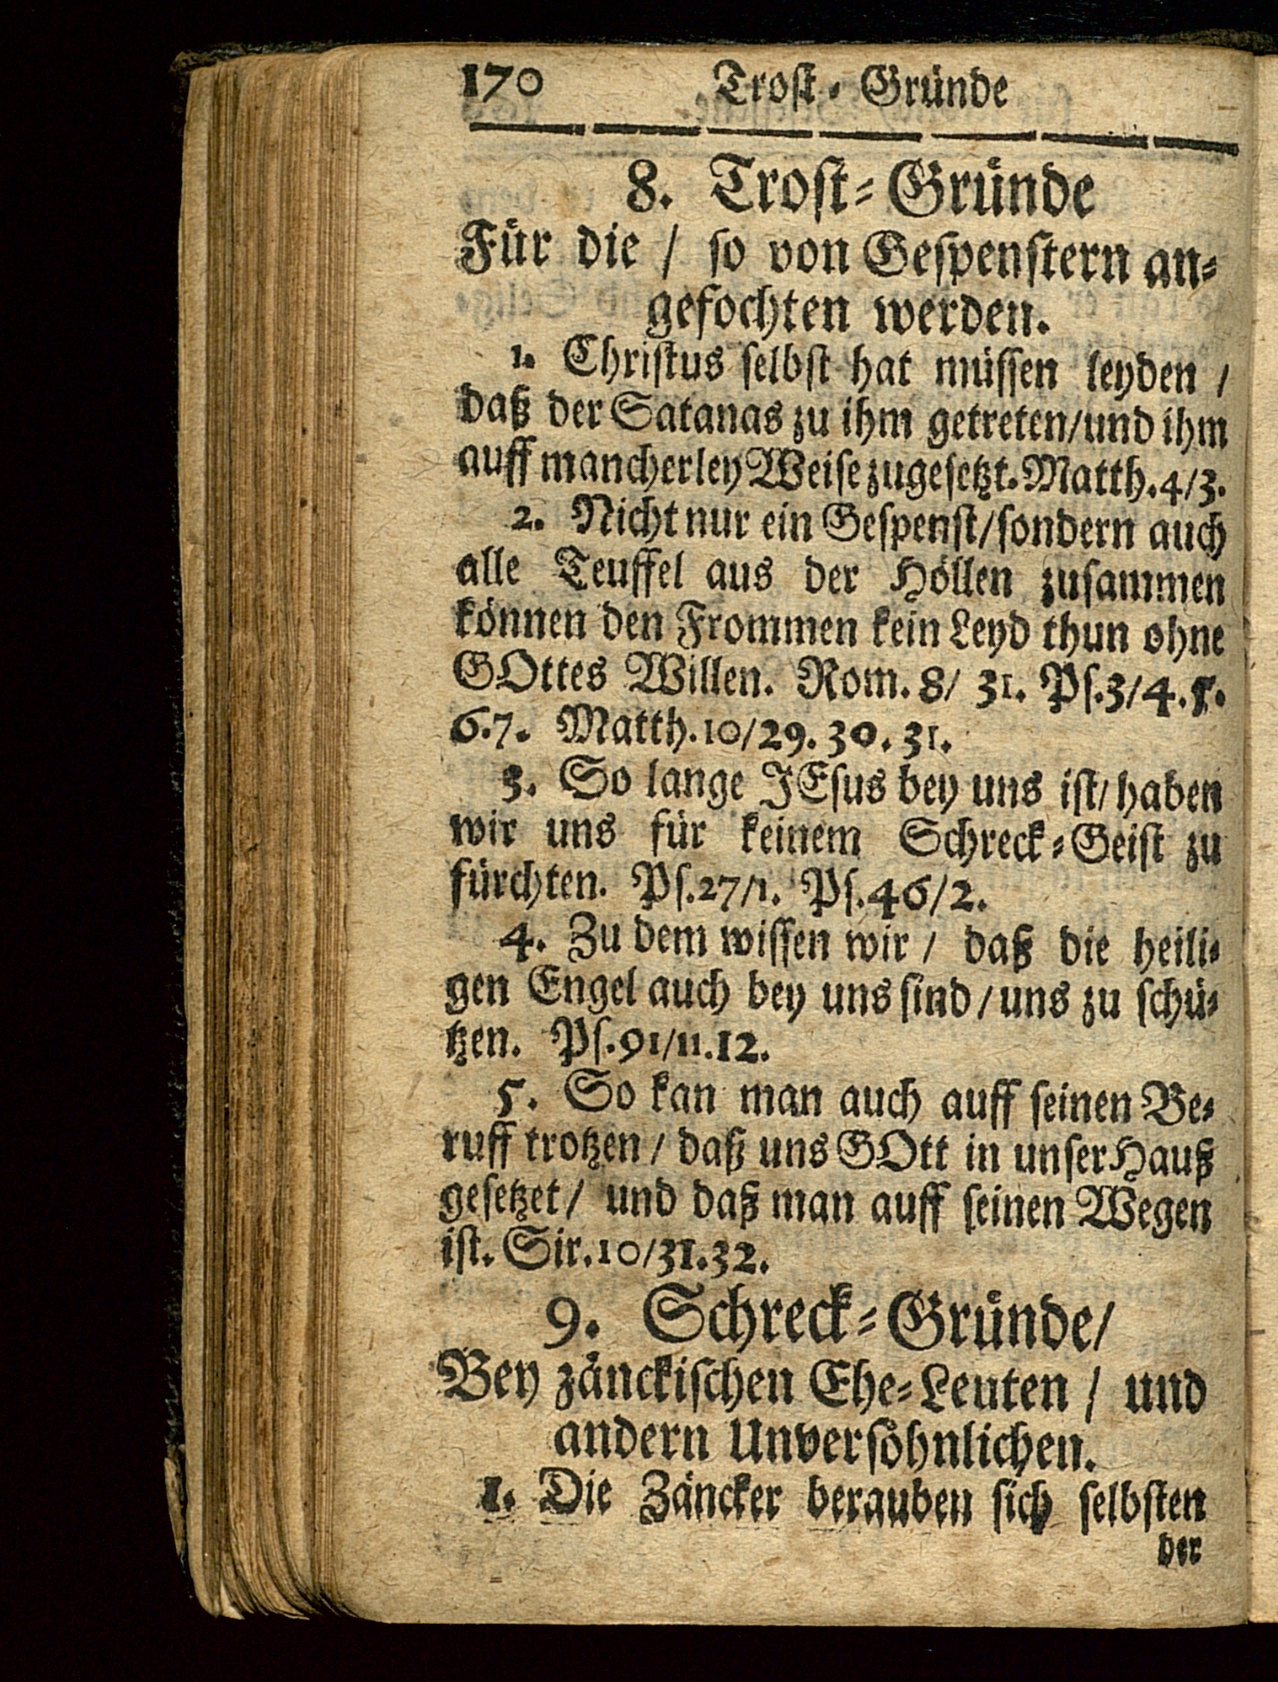 170 Trost-Gründe
8. Trost-Gründe
Für die / so von Gespenstern an-
gefochten werden.
1. Christus selbst hat müssen leyden /
daß der Satanas zu ihm getreten/und ihm
auff mancherley Weise zugesetzt. Matth.4/3.
2. Nicht nur ein Gespenst/sondern auch
alle Teuffel aus der Höllen zusammen
können den Frommen kein Leyd thun ohne
GOttes Willen. Rom. 8/ 31. Ps.3/4.5.
6.7. Matth.10/29. 30. 31.
3. So lange JEsus bey uns ist/haben
wir uns für keinem Schreck-Geist zu
fürchten. Ps.27/1. Ps.46/2.
4. Zu dem wissen wir / daß die heili-
gen Engel auch bey uns sind/uns zu schü-
tzen. Ps.91/11.12.
5. So kan man auch auff seinen Be-
ruff trotzen / daß uns GOtt in unser Hauß
gesetzet/ und daß man auff seinen Wegen
ist. Sir.10/31.32.
9. Schreck-Gründe/
Bey zänckischen Ehe-Leuten / und
andern Unversöhnlichen.
1. Die Zäncker berauben sich selbsten
der